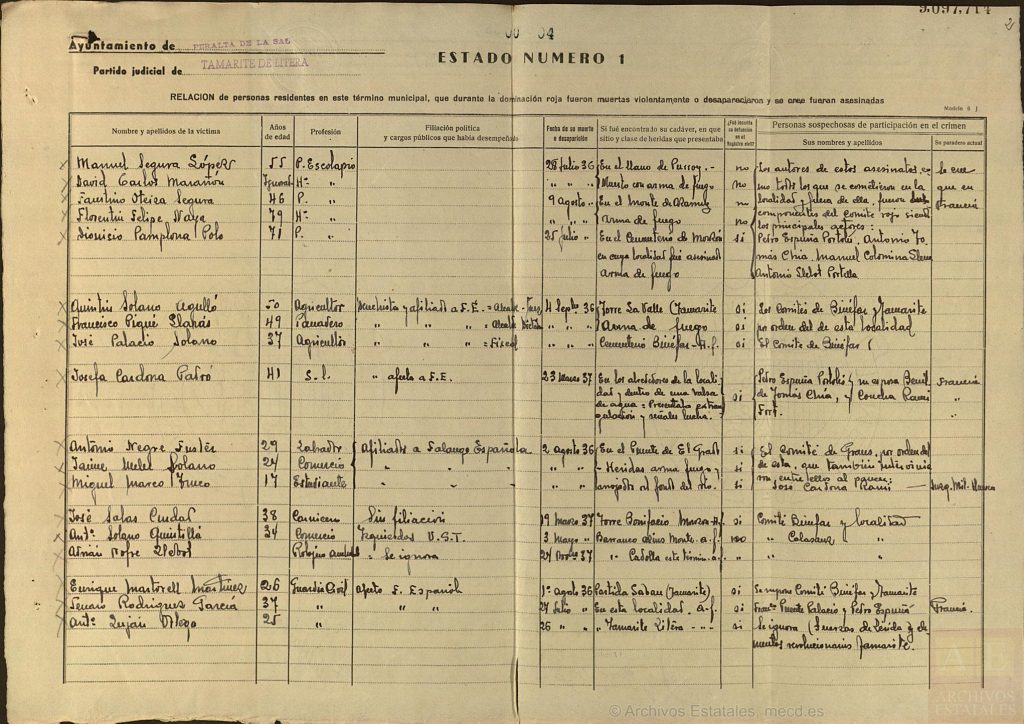 3.097.714
2
Ayuntamiento de PERALTA DE LA SAL
ESTADO NUMERO 1
Partido judicial de TAMARITE DE LITERA
RELACION de personas residentes en este término municipal, que durante la dominación roja fueron muertas violentamente o desaparecieron y se cree fueran asesinadas
Nombre y apellidos de la víctima
Años de edad
Profesión
Filiación política y cargos públicos que había desempeñado
Fecha de su muerte o desaparición
Si fué encontrado su cadáver, en que sitio y clase de heridas que presentaba
¿Fué inscrita su defunción en el Registro civil?
Personas sospechosas de participación en el crimen
Sus nombres y apellidos
Su paradero actual
Manuel Segura López 55 P. Escolapio 28 Julio 36 En el llano de Purroy.- no Los autores de estos asesinatos, co se cree
David Carlos Marañón Ignorase Hº " " " " Muerto con arma de fuego no mo todos los que se cometieron en la que en
Faustino Oteiza Segura 46 P. " 9 Agosto " En el Monte de no localidad y fuera de ella, fueron Francia
Florentín Felipe Naya 79 Hº " " " " Arma de fuego no componentes del Comité rojo siendo
Dionisio Pamplona Polo 71 P. " 25 Julio " En el Cementerio de Monzón si los principales actores:
en cuya localidad fué asesinado Pedro Espuña Portolés, Antonio To
Arma de fuego más Chía, Manuel Colomina
Antonio Llobot Portella
Quintín Solano Agulló 50 Agricultor y afiliado a F.E. = Alcalde 4 Sepbre 36 Torre La Valle (Tamarite si Los Comités de Binéfar y Tamarite
Francisco Piqué Llarás 49 Panadero " " " = Alcalde " " " Arma de fuego si por orden del de esta localidad
José Palacio Solano 37 Agricultor " " " = Fiscal " " " Cementerio Binéfar - A.f. si El Comité de Binéfar
Josefa Cardona Patró 41 S.l. " afecta a F.E. 23 Marzo 37 En los alrededores de la locali Pedro Espuña Portolés su esposa Francia
dad y dentro de una balsa si de Tomás Chía, y Concha Rami "
de agua = Presentaba estran "
gulación y señales lucha.
Antonio Negre Fustér 29 Labrador Afiliado a Falange Española 2 agosto 36 En el Puente de El Grado si El Comité de Graus, por orden del
Jaime Melet Solano 24 Comercio " " " " " " - Heridas arma fuego y si de esta, que también intervinie
Miguel Marco Truco 17 Estudiante " " " " " arrojado al fondo del río. si ron, entre ellos al parecer:
José Cardona Rami
José Salas Ciudad 38 Carnicero Sin filiación 19 marzo 37 Torre Bonifacio Monzón - A.f. si Comité Binéfar y localidad
Antº Solano Quintillá 34 Comercio Izquierdas U.G.T. 3 mayo " Barranco - a.f. no " Calasanz "
Adrián Llobot Se ignora 37 " " "
Enrique Martorell Martínez 26 Guardia Civil Afecto F. Española 1º agosto 36 Partida Sabau (Tamarite) si Se supone Comité Binéfar y Tamarite
Genaro Rodríguez García 37 " " 27 Julio " En esta localidad. A.f. si Puente Palacio y Pedro Espuña Francia
Antº Luján Ortego 25 " 26 " " " Tamarite Litera - - - si Se ignora (Fuerzas de Lérida y ele
mentos revolucionarios Tamarite.
© Archivos Estatales, mecd.es
ARCHIVOS
ESTATALES